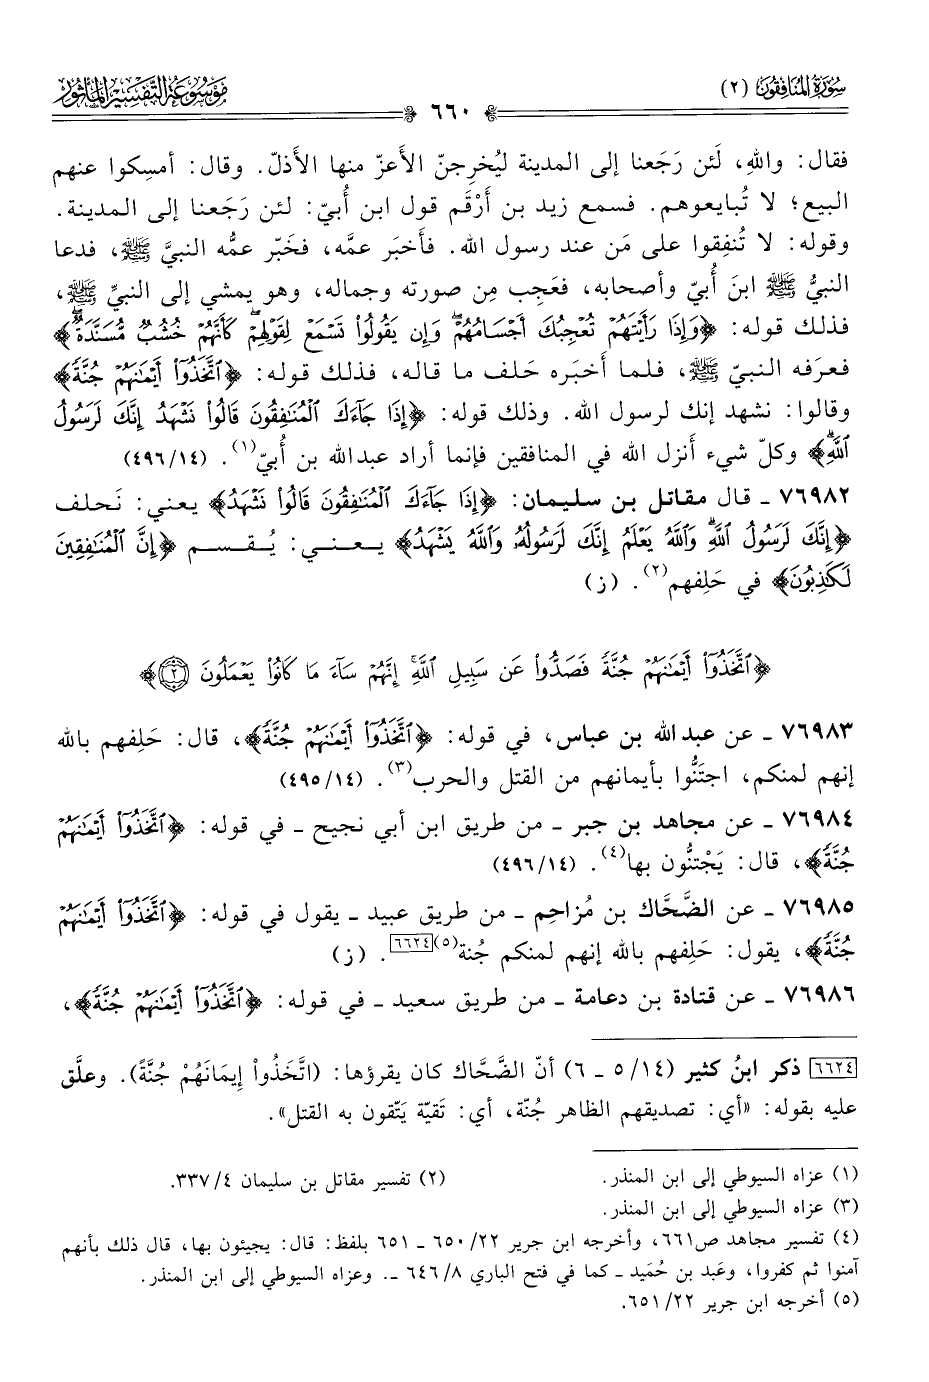 سُورَةُ المُنَافِقُونَ (٢)
٦٦٠
مَوْسُوعَةُ التَّفْسِيرِ المَأْثُورِ
فقال: واللهِ، لَئن رَجَعنا إلى المدينة ليُخرِجنّ الأَعزّ منها الأَذلّ. وقال: أمسِكوا عنهم
البيع؛ لا تُبايعوهم. فسمع زيد بن أَرْقَم قول ابن أُبيّ: لئن رَجَعنا إلى المدينة.
وقوله: لا تُنفِقوا على مَن عند رسول الله. فأَخبَر عمّه، فخَبّر عمُّه النبيَّ ﷺ، فدعا
النبيُّ ﷺ ابنَ أُبيّ وأصحابه، فعَجِب مِن صورته وجماله، وهو يمشي إلى النبيِّ ﷺ،
فذلك قوله: ﴿وَإِذَا رَأَيْتَهُمْ تُعْجِبُكَ أَجْسَامُهُمْ ۖ وَإِن يَقُولُوا۟ تَسْمَعْ لِقَوْلِهِمْ ۖ كَأَنَّهُمْ خُشُبٌ مُّسَنَّدَةٌ ۖ﴾
فعرَفه النبيّ ﷺ، فلما أَخبَره حَلف ما قاله، فذلك قوله: ﴿ٱتَّخَذُوٓا۟ أَيْمَـٰنَهُمْ جُنَّةً﴾
وقالوا: نشهد إنك لرسول الله. وذلك قوله: ﴿إِذَا جَآءَكَ ٱلْمُنَـٰفِقُونَ قَالُوا۟ نَشْهَدُ إِنَّكَ لَرَسُولُ
ٱللَّهِ ۗ﴾ وكلّ شيء أَنزل الله في المنافقين فإنما أراد عبد الله بن أُبيّ(١). (١٤/ ٤٩٦)
٧٦٩٨٢ ـ قال مقاتل بن سليمان: ﴿إِذَا جَآءَكَ ٱلْمُنَـٰفِقُونَ قَالُوا۟ نَشْهَدُ﴾ يعني: نَحلف
﴿إِنَّكَ لَرَسُولُ ٱللَّهِ ۗ وَٱللَّهُ يَعْلَمُ إِنَّكَ لَرَسُولُهُۥ وَٱللَّهُ يَشْهَدُ﴾ يـعـنـي: يُـقـسـم ﴿إِنَّ ٱلْمُنَـٰفِقِينَ
لَكَـٰذِبُونَ﴾ في حَلِفهم(٢). (ز)
﴿ٱتَّخَذُوٓا۟ أَيْمَـٰنَهُمْ جُنَّةً فَصَدُّوا۟ عَن سَبِيلِ ٱللَّهِ ۚ إِنَّهُمْ سَآءَ مَا كَانُوا۟ يَعْمَلُونَ ۝٢﴾
٧٦٩٨٣ ـ عن عبد الله بن عباس، في قوله: ﴿ٱتَّخَذُوٓا۟ أَيْمَـٰنَهُمْ جُنَّةً﴾، قال: حَلِفهم بالله
إنهم لمنكم، اجتَنُّوا بأيمانهم من القتل والحرب(٣). (١٤/ ٤٩٥)
٧٦٩٨٤ ـ عن مجاهد بن جبر ـ من طريق ابن أبي نجيح ـ في قوله: ﴿ٱتَّخَذُوٓا۟ أَيْمَـٰنَهُمْ
جُنَّةً﴾، قال: يَجْتنُّون بها(٤). (١٤/ ٤٩٦)
٧٦٩٨٥ ـ عن الضَّحَّاك بن مُزاحِم ـ من طريق عبيد ـ يقول في قوله: ﴿ٱتَّخَذُوٓا۟ أَيْمَـٰنَهُمْ
جُنَّةً﴾، يقول: حَلِفهم بالله إنهم لمنكم جُنة(٥)[٦٦٢٤]. (ز)
٧٦٩٨٦ ـ عن قتادة بن دعامة ـ من طريق سعيد ـ في قوله: ﴿ٱتَّخَذُوٓا۟ أَيْمَـٰنَهُمْ جُنَّةً﴾،
[٦٦٢٤] ذكر ابنُ كثير (١٤/ ٥ ـ ٦) أنّ الضَّحَّاك كان يقرؤها: (اتَّخَذُواْ إِيمَانَهُمْ جُنَّةً). وعلَّق
عليه بقوله: «أي: تصديقهم الظاهر جُنّة، أي: تَقيّة يَتّقون به القتل».
(١) عزاه السيوطي إلى ابن المنذر. (٢) تفسير مقاتل بن سليمان ٤/ ٣٣٧.
(٣) عزاه السيوطي إلى ابن المنذر.
(٤) تفسير مجاهد ص٦٦١، وأخرجه ابن جرير ٢٢/ ٦٥٠ ـ ٦٥١ بلفظ: قال: يجيئون بها، قال ذلك بأنهم
آمنوا ثم كفروا، وعَبد بن حُمَيد ـ كما في فتح الباري ٨/ ٦٤٦ ـ. وعزاه السيوطي إلى ابن المنذر.
(٥) أخرجه ابن جرير ٢٢/ ٦٥١.